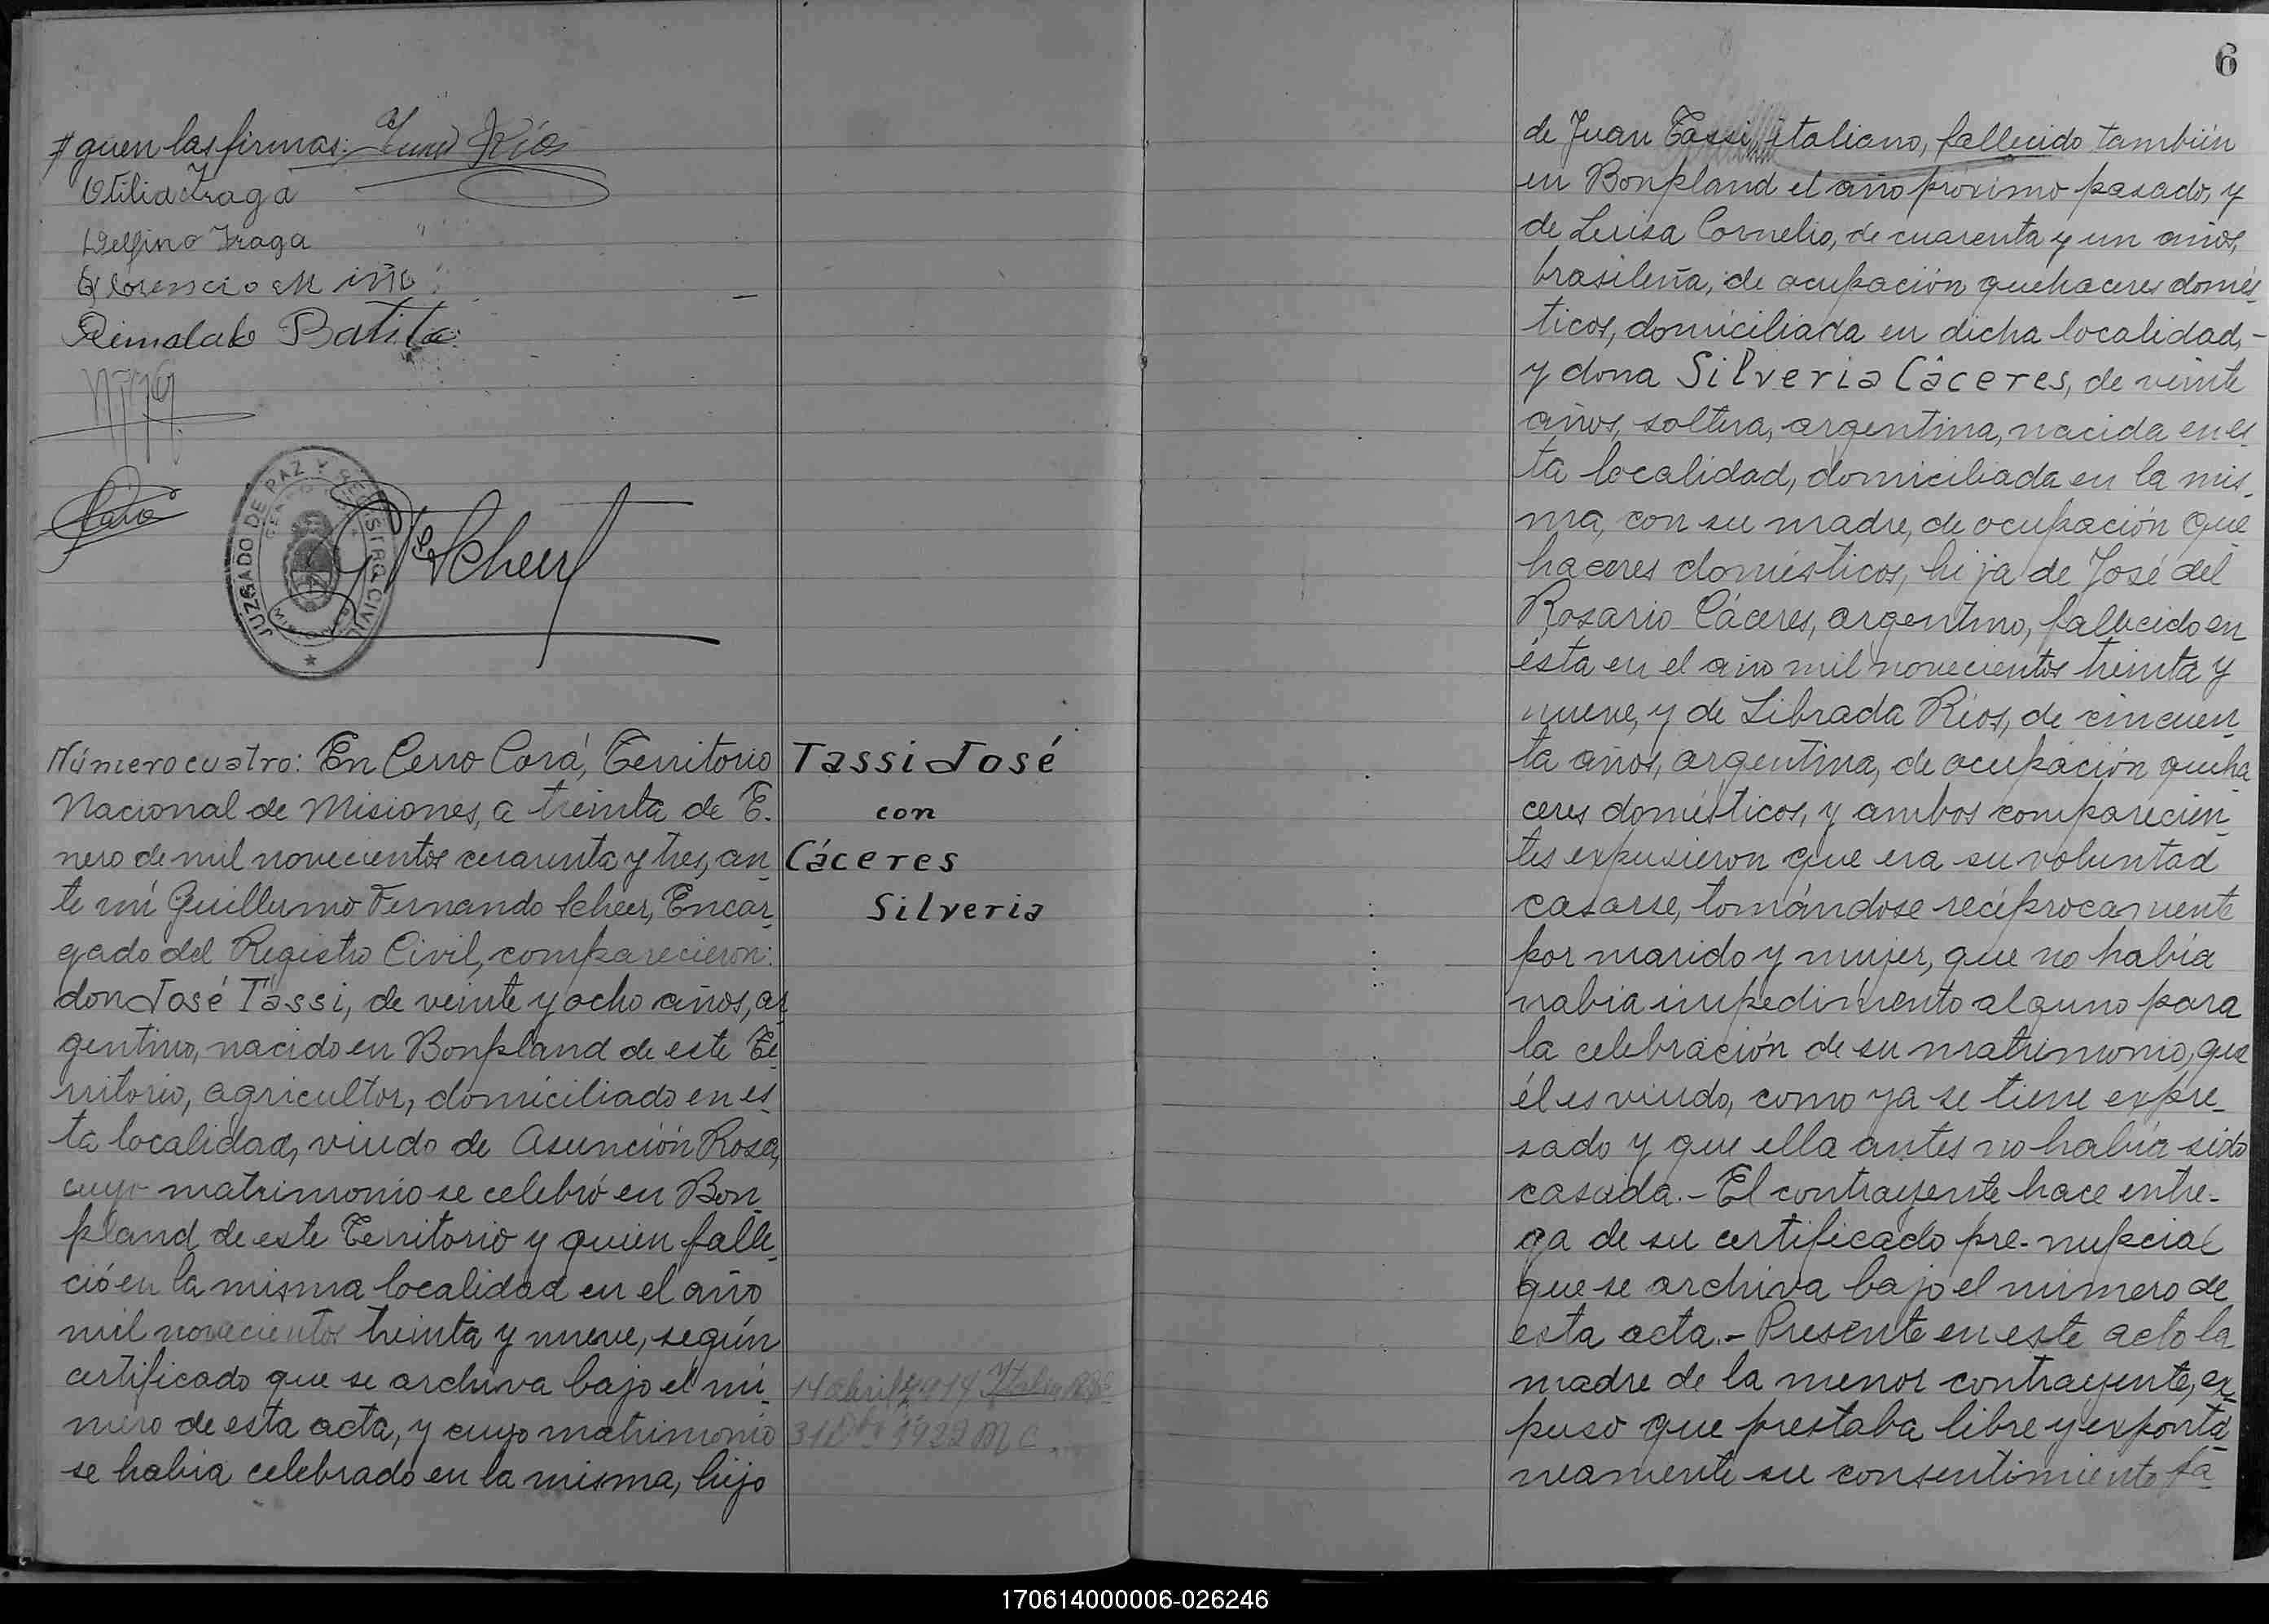 guen las firmas:
Otilia Fraga
Delfino Fraga
Florencio Miño
Batista
JUZGADO DE PAZ Y REGISTRO CIVIL
Scheer
Número cuatro: En Cerro Corá, Territorio
Nacional de Misiones, a treinta de E-
nero de mil novecientos cuarenta y tres, an-
te mí Guillermo Fernando Scheer, Encar-
gado del Registro Civil, comparecieron:
don José Tassi, de veinte y ocho años, ar-
gentino, nacido en Bonpland de este Te-
rritorio, agricultor, domiciliado en es-
ta localidad, viudo de Asunción Rosa,
cuyo matrimonio se celebró en Bon-
pland de este Territorio y quien falle-
ció en la misma localidad en el año
mil novecientos treinta y nueve, según
certificado que se archiva bajo el nú-
mero de esta acta, y cuyo matrimonio
se habia celebrado en la misma, hijo
Tassi José
con
Cáceres
Silveria
14 abril 1914
31 1922 M C.
6
de Juan Tassi, italiano, fallecido también
en Bonpland el año próximo pasado, y
de Luisa Cornelio, de cuarenta y un años,
brasileña, de ocupación quehaceres domés-
ticos, domiciliada en dicha localidad,-
y dona Silveria Cáceres, de veinte
años, soltera, argentina, nacida en es-
ta localidad, domiciliada en la mis-
ma, con su madre, de ocupación que
haceres domésticos, hija de José del
Rosario Cáceres, argentino, fallecido en
ésta en el año mil novecientos treinta y
nueve, y de Librada Ríos, de cincuen-
ta años, argentina, de ocupación queha-
ceres domésticos, y ambos comparecien-
tes expusieron que era su voluntad
casarse, tomándose recíprocamente
por marido y mujer, que no había
nabia impedimento alguno para
la celebración de su matrimonio, que
él es viudo, como ya se tiene expre-
sado y que ella antes no había sido
casada.- El contrayente hace entre-
ga de su certificado pre-nupcial
que se archiva bajo el número de
esta acta.- Presente en este acto la
madre de la menor contrayente, ex-
puso que prestaba libre y expontá-
neamente su consentimiento pa-
170614000006-026246